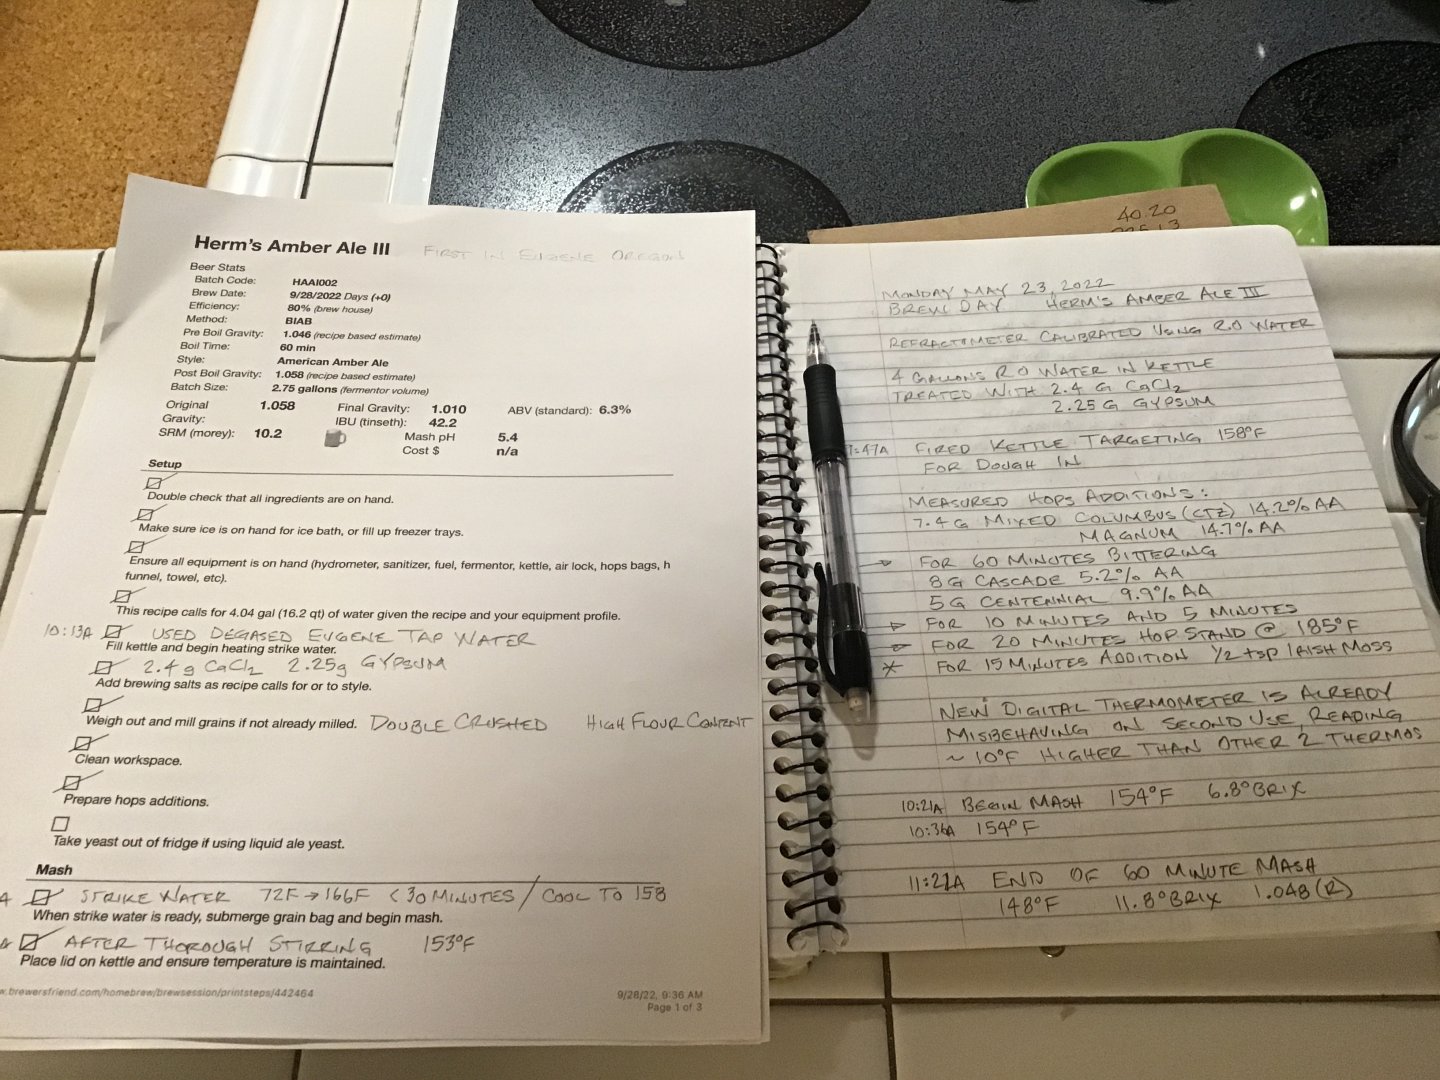 Herm's Amber Ale III FIRST IN EUGENE OREGON
Beer Stats
Batch Code: HAAI002
Brew Date: 9/28/2022 Days (+0)
Efficiency: 80% (brew house)
Method: BIAB
Pre Boil Gravity: 1.046 (recipe based estimate)
Boil Time: 60 min
Style: American Amber Ale
Post Boil Gravity: 1.058 (recipe based estimate)
Batch Size: 2.75 gallons (fermentor volume)
Original Gravity: 1.058 Final Gravity: 1.010 ABV (standard): 6.3%
IBU (tinseth): 42.2
SRM (morey): 10.2 Mash pH 5.4
Cost $ n/a
Setup
Double check that all ingredients are on hand.
Make sure ice is on hand for ice bath, or fill up freezer trays.
Ensure all equipment is on hand (hydrometer, sanitizer, fuel, fermentor, kettle, air lock, hops bags, h
funnel, towel, etc).
This recipe calls for 4.04 gal (16.2 qt) of water given the recipe and your equipment profile.
10:13A USED DEGASED EUGENE TAP WATER
Fill kettle and begin heating strike water.
2.4g CaCl2 2.25g GYPSUM
Add brewing salts as recipe calls for or to style.
Weigh out and mill grains if not already milled. DOUBLE CRUSHED HIGH FLOUR CONTENT
Clean workspace.
Prepare hops additions.
Take yeast out of fridge if using liquid ale yeast.
Mash
A STRIKE WATER 72F → 166F < 30 MINUTES / COOL TO 158
When strike water is ready, submerge grain bag and begin mash.
AFTER THOROUGH STIRRING 153°F
Place lid on kettle and ensure temperature is maintained.
w.brewersfriend.com/homebrew/brewsession/printsteps/442464
9/28/22, 9:36 AM
Page 1 of 3
40.20
MONDAY MAY 23, 2022
BREW DAY HERM'S AMBER ALE III
REFRACTOMETER CALIBRATED USING R.O WATER
4 GALLONS R O WATER IN KETTLE
TREATED WITH 2.4 G CaCl2
2.25 G GYPSUM
7:47A FIRED KETTLE TARGETING 158°F
FOR DOUGH IN
MEASURED HOPS ADDITIONS:
7.4 G MIXED COLUMBUS (CTZ) 14.2% AA
MAGNUM 14.7% AA
FOR 60 MINUTES BITTERING
8 G CASCADE 5.2% AA
5 G CENTENNIAL 9.9% AA
FOR 10 MINUTES AND 5 MINUTES
FOR 20 MINUTES HOP STAND @ 185°F
* FOR 15 MINUTES ADDITION 1/2 tsp IRISH MOSS
NEW DIGITAL THERMOMETER IS ALREADY
MISBEHAVING ON SECOND USE, READING
~ 10°F HIGHER THAN OTHER 2 THERMOS
10:21A BEGIN MASH 154°F 6.8°BRIX
10:36A 154°F
11:21A END OF 60 MINUTE MASH
148°F 11.8°BRIX 1.048 (R)